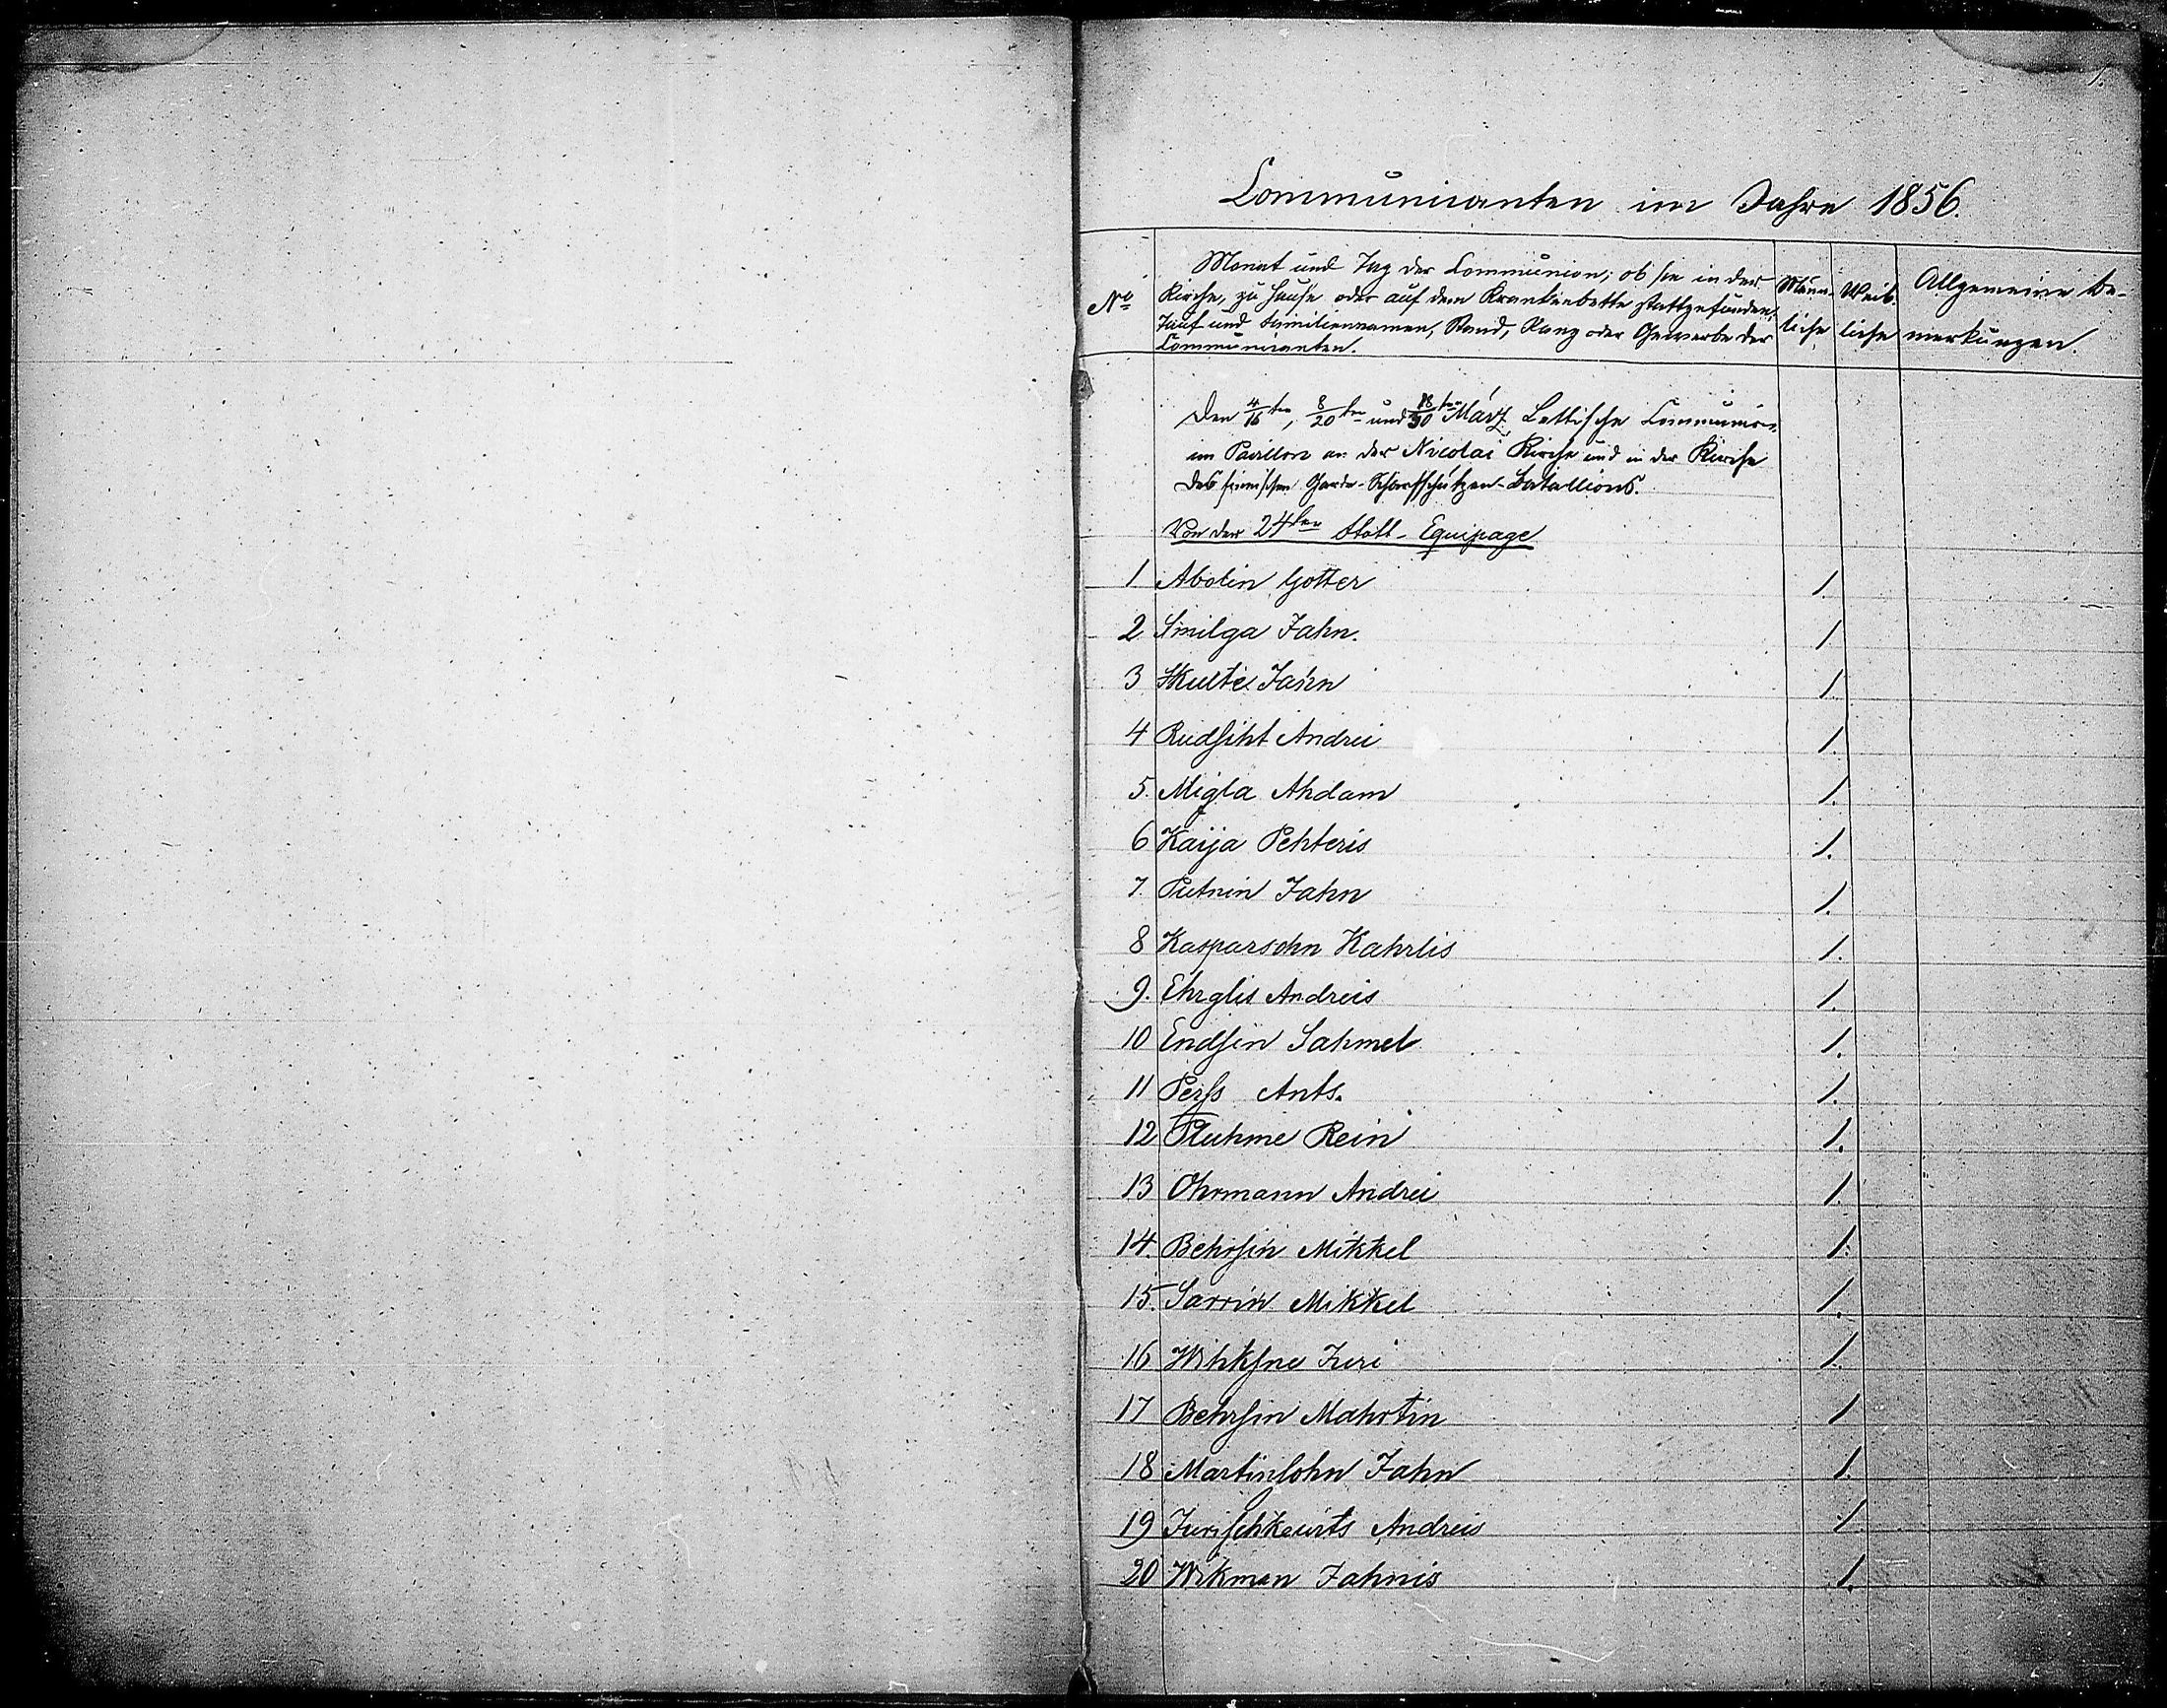 1.
Communicanten im Jahre 1856.
No
Monat und Tag der Communion; ob sie in der
Kirche, zu Hause oder auf dem Krankenbette stattgefunden;
Tauf und Familiennamen, Stand, Rang oder Gewerbe der
Communicanten.
Männ-
liche
Weib-
liche
Allgemeine Be-
merkungen.
Den 4/16ten, 8/20ten und 18/30ten März Lettische Communion
im Pavillon an der Nicolai Kirche und in der Kirche
des finnischen Garde-Scharfschützen-Bataillons.
Von der 24ten Flott-Equipage
1 Abolin Gotter 1.
2 Smilga Jahn. 1.
3 Skulte Jahn 1.
4 Rudsiht Andrei 1.
5. Migla Ahdam 1.
6 Kaija Pehteris 1.
7. Putnin Jahn 1.
8 Kasparsohn Kahrlis 1.
9. Ehrglis Andreis 1.
10 Endsin Sahmel 1.
11 Perss Ants. 1.
12 Pluhme Rein 1.
13 Ohrmann Andrei 1.
14. Behrsin Mikkel 1.
15. Sarrin Mikkel 1.
16 Wihksne Juri 1.
17 Behrsin Mahrtin 1
18 Martinsohn Jahn 1.
19 Jurischkewits Andreis 1.
20 Wikman Jahnis 1.